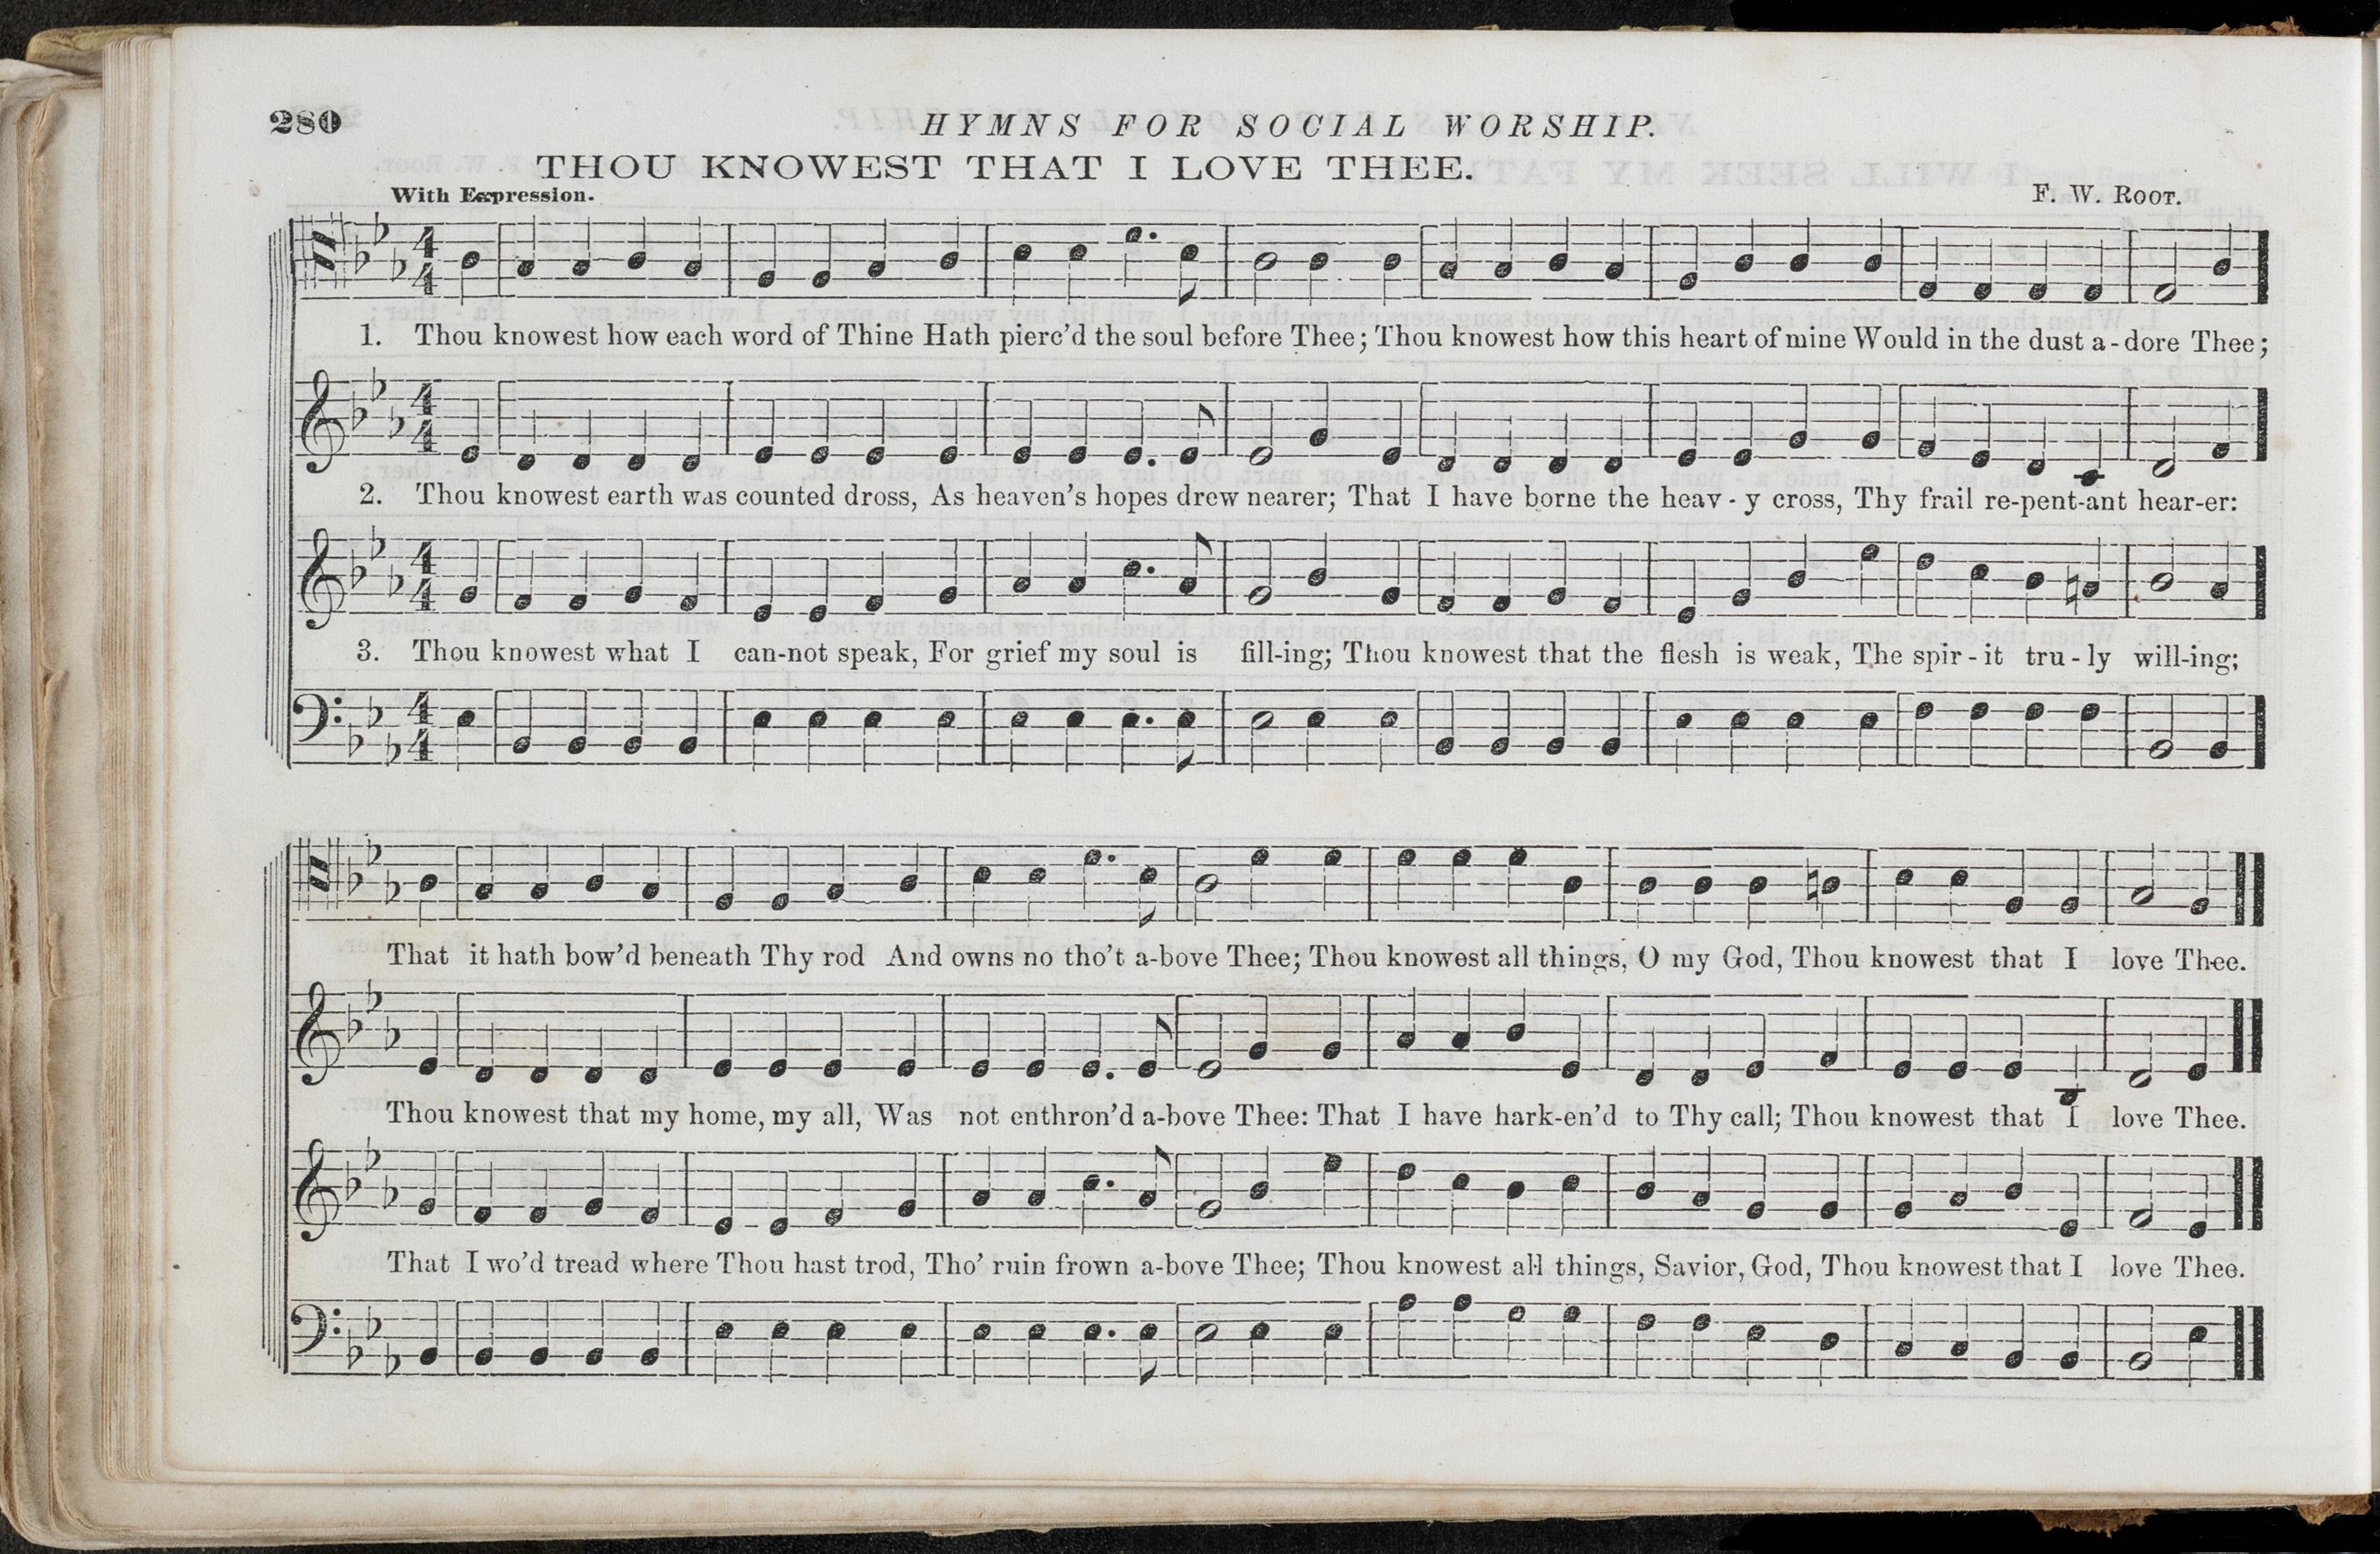 280
HYMNS FOR SOCIAL WORSHIP.
THOU KNOWEST THAT I LOVE THEE.
With Expression.
F. W. ROOT.
1. Thou knowest how each word of Thine Hath pierc'd the soul before Thee; Thou knowest how this heart of mine Would in the dust a-dore Thee;
2. Thou knowest earth was counted dross, As heaven's hopes drew nearer; That I have borne the heav-y cross, Thy frail re-pent-ant hear-er:
3. Thou knowest what I can-not speak, For grief my soul is fill-ing; Thou knowest that the flesh is weak, The spir-it tru-ly will-ing;
That it hath bow'd beneath Thy rod And owns no tho't a-bove Thee; Thou knowest all things, O my God, Thou knowest that I love Thee.
Thou knowest that my home, my all, Was not enthron'd a-bove Thee: That I have hark-en'd to Thy call; Thou knowest that I love Thee.
That I wo'd tread where Thou hast trod, Tho' ruin frown a-bove Thee; Thou knowest all things, Savior, God, Thou knowest that I love Thee.